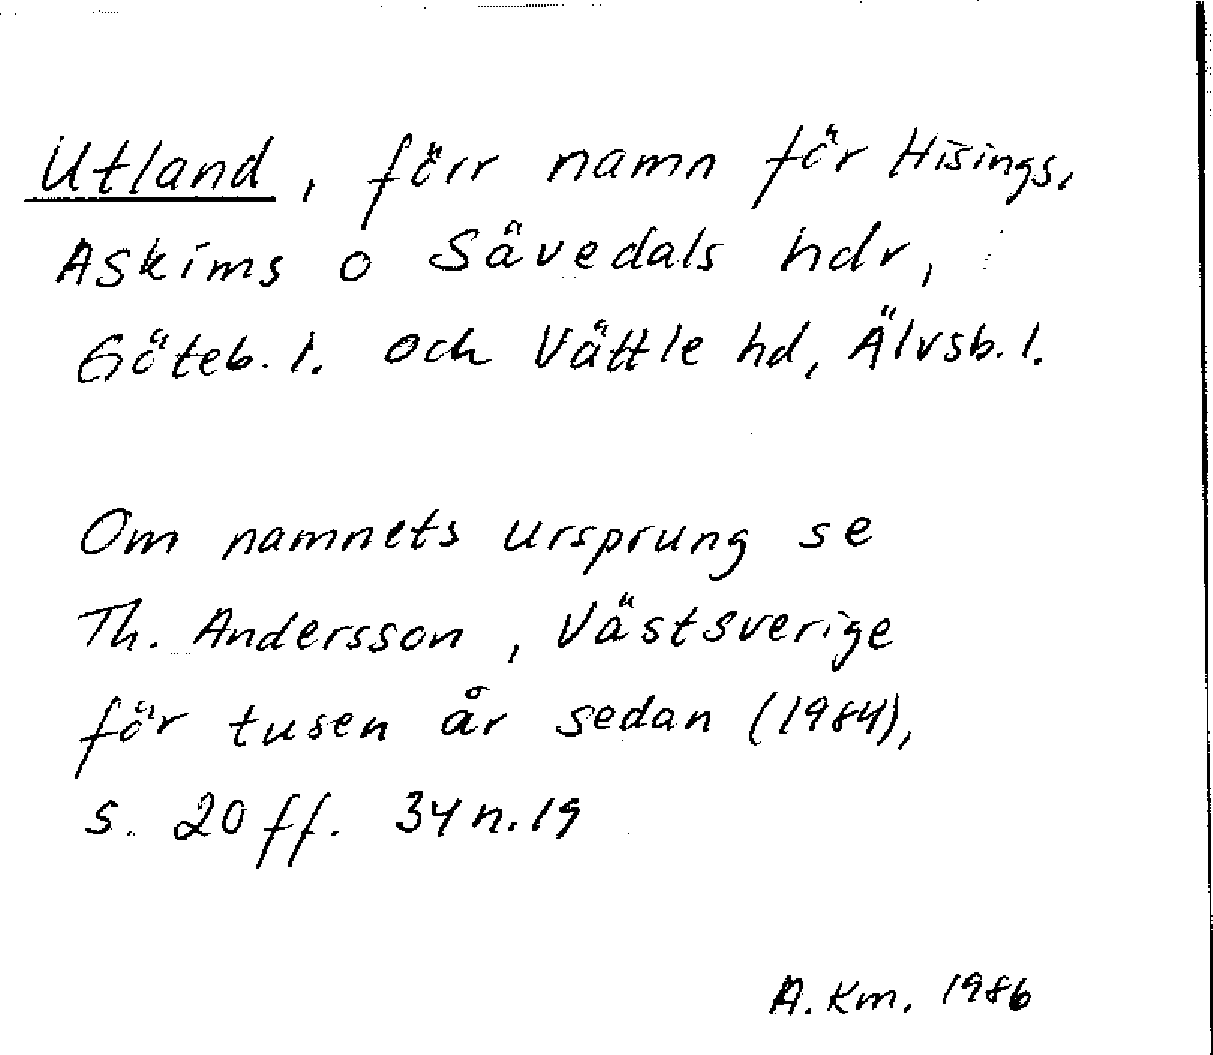 Utland, förr namn för Hisings,
Askims o Sävedals hdr,
Göteb. l. och Vättle hd, Älvsb. l.
Om namnets ursprung se
Th. Andersson, Västsverige
för tusen år sedan (1984),
s. 20 ff. 34 n. 19
A. Km. 1986